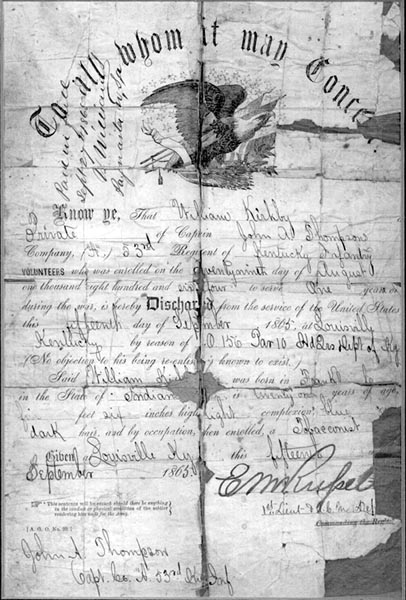 To all whom it may Concer
Know ye, That William Kirkby
Private of Captain John A Thompson
Company, (A,) 53rd Regiment of Kentucky Infantry
VOLUNTEERS who was enrolled on the day of August
one thousand eight hundred and sixty four to serve One years or
during the war, is hereby Discharged from the service of the United States
this fifteenth day of September 1865, at Louisville
Kentucky by reason of G.O. 156 Par 10 Hd Qrs Dept of Ky
(No objection to his being re-enlisted is known to exist.)
Said William was born in
in the State of Indian is twenty one years of age,
feet six inches high, light complexion, blue
dark hair, and by occupation, when enrolled, a Tobacconist
Given at Louisville Ky this fifteenth
September 1865.
This sentence will be erased should there be anything
in the conduct or physical condition of the soldier
rendering him unfit for the Army.
[A. G. O. No. 99.]
1st Lieut
Commanding the Reg't
John A Thompson
Capt. Co. A. 53rd Ky Inf